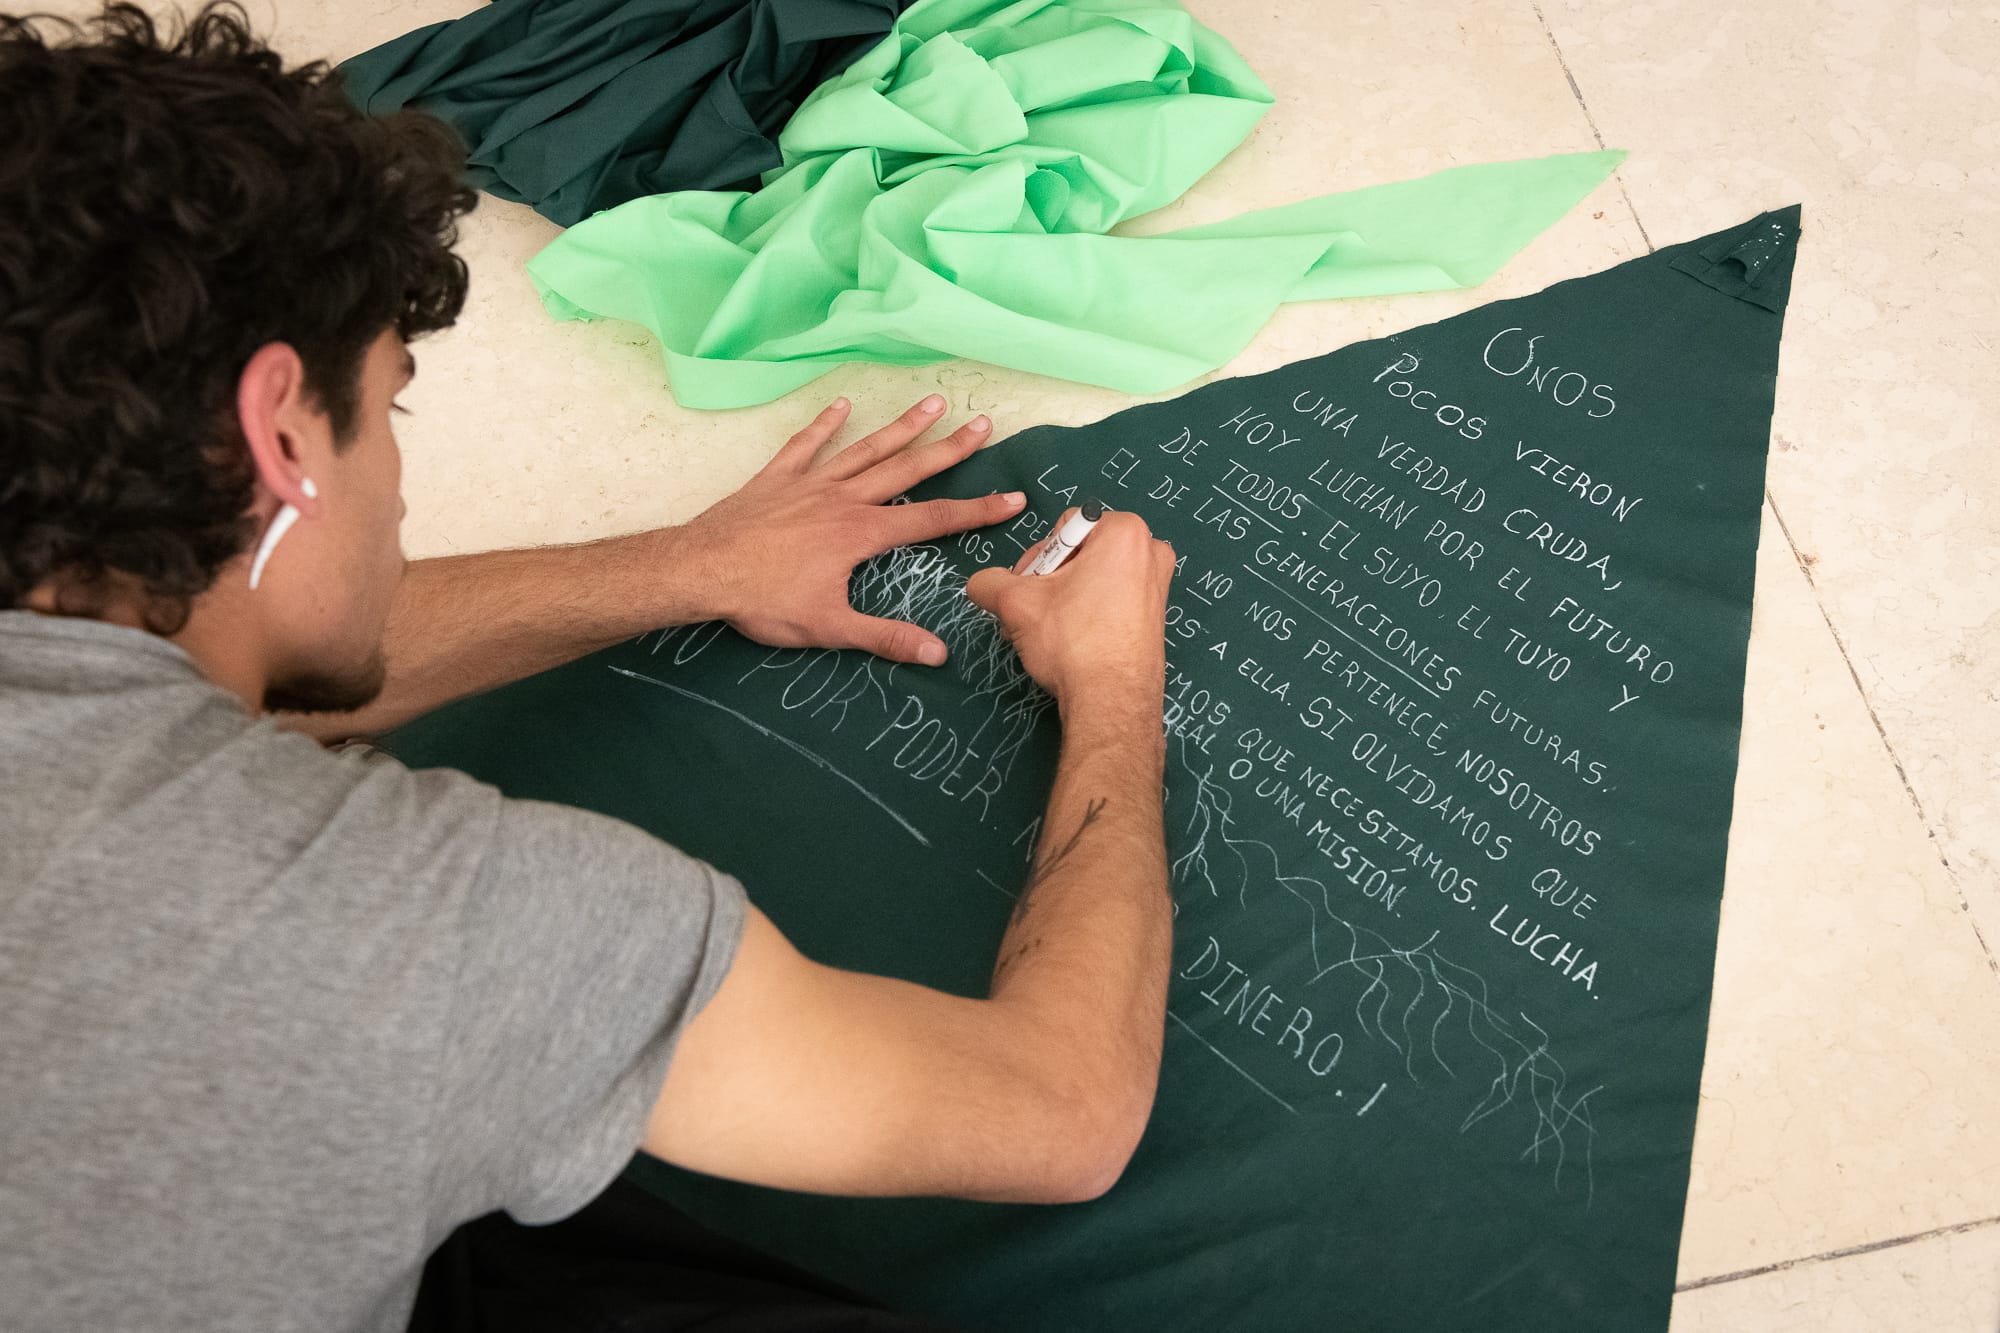 UNOS
POCOS VIERON
UNA VERDAD CRUDA,
HOY LUCHAN POR EL FUTURO
DE TODOS. EL SUYO, EL TUYO Y
EL DE LAS GENERACIONES FUTURAS.
LA NO NOS PERTENECE, NOSOTROS
A ELLA. SI OLVIDAMOS QUE
QUE NECESITAMOS. LUCHA.
UN O UNA MISIÓN.
NO POR PODER.
DINERO.